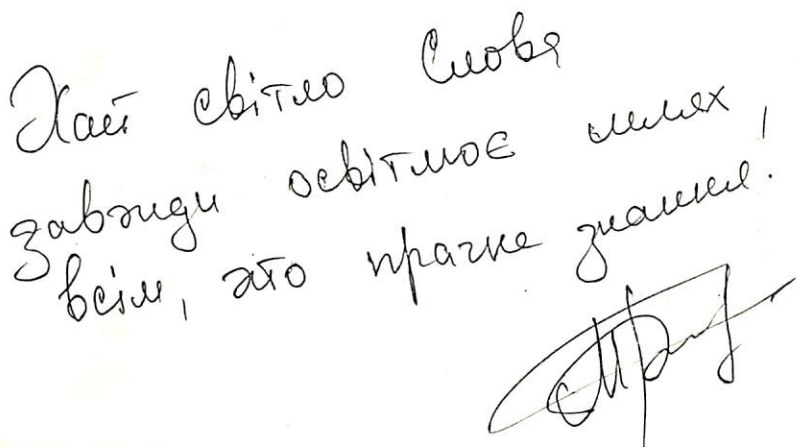 Хай світло Слова
завжди освітлює шлях
всім, хто прагне знання!